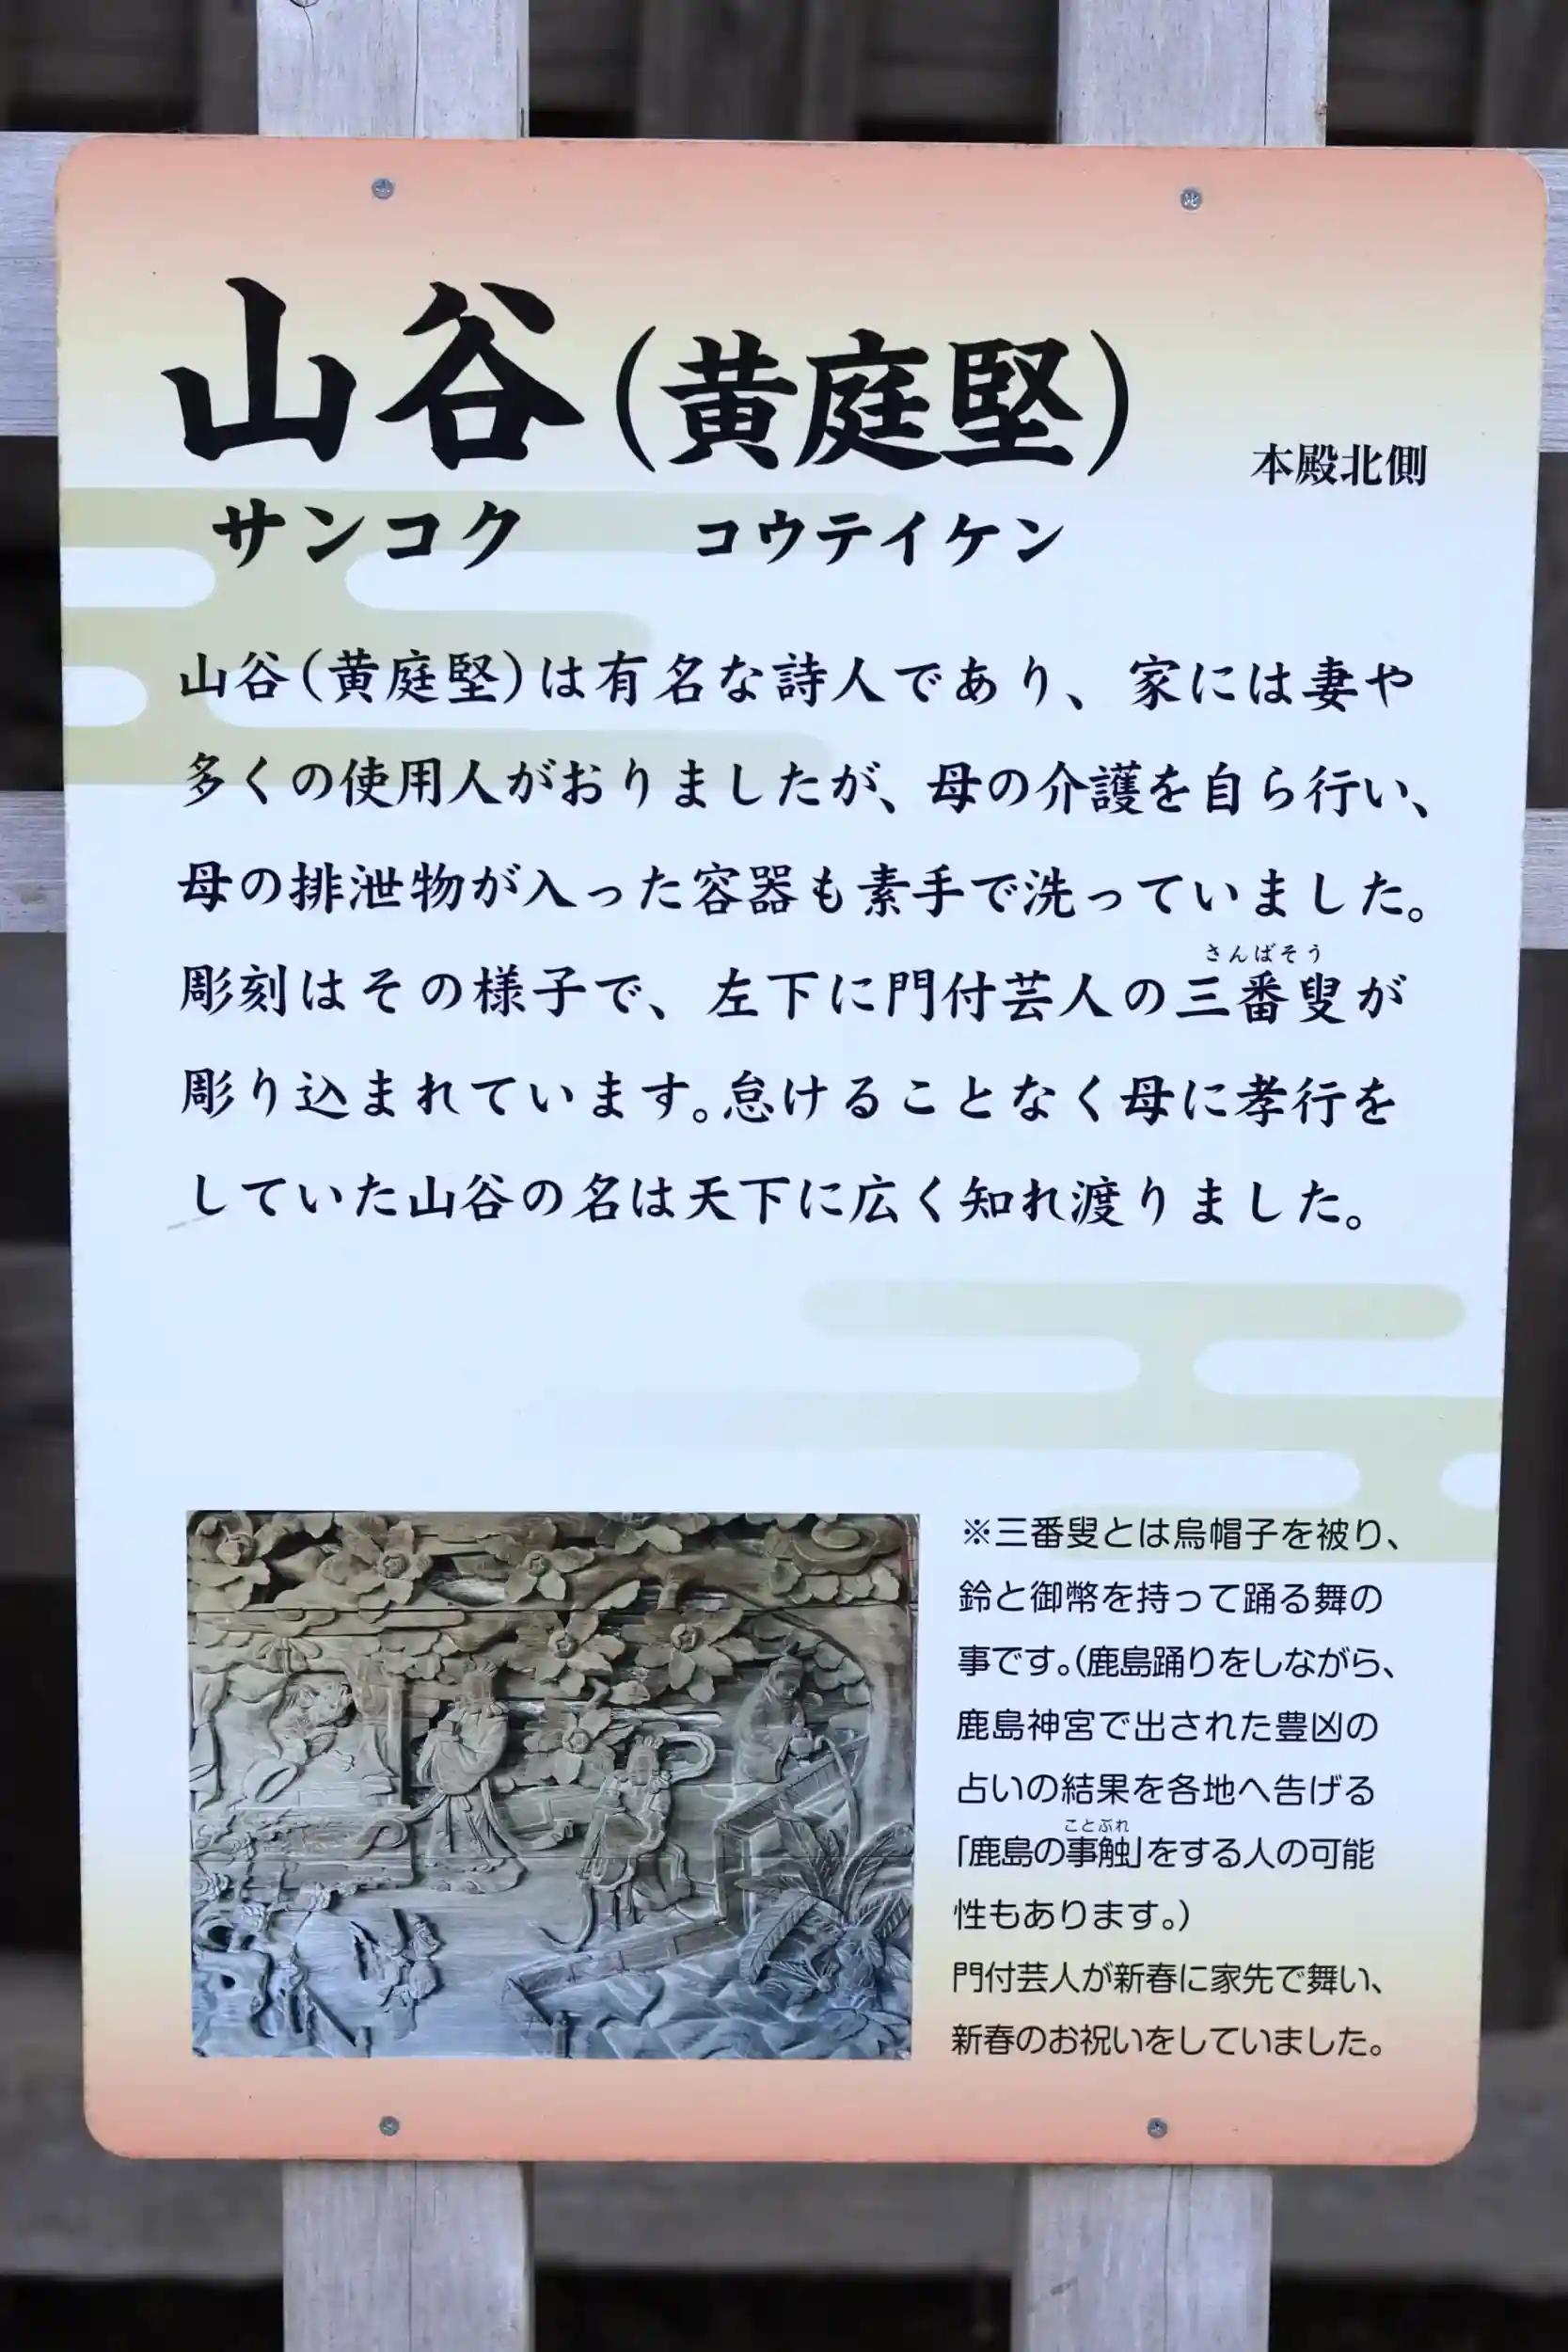 山谷(黄庭堅)
本殿北側
サンコク コウテイケン
山谷(黄庭堅)は有名な詩人であり、家には妻や
多くの使用人がおりましたが、母の介護を自ら行い、
母の排泄物が入った容器も素手で洗っていました。
さんばそう
彫刻はその様子で、左下に門付芸人の三番叟が
彫り込まれています。怠けることなく母に孝行を
していた山谷の名は天下に広く知れ渡りました。
※三番叟とは烏帽子を被り、
鈴と御幣を持って踊る舞の
事です。(鹿島踊りをしながら、
鹿島神宮で出された豊凶の
占いの結果を各地へ告げる
ことぶれ
「鹿島の事触」をする人の可能
性もあります。)
門付芸人が新春に家先で舞い、
新春のお祝いをしていました。